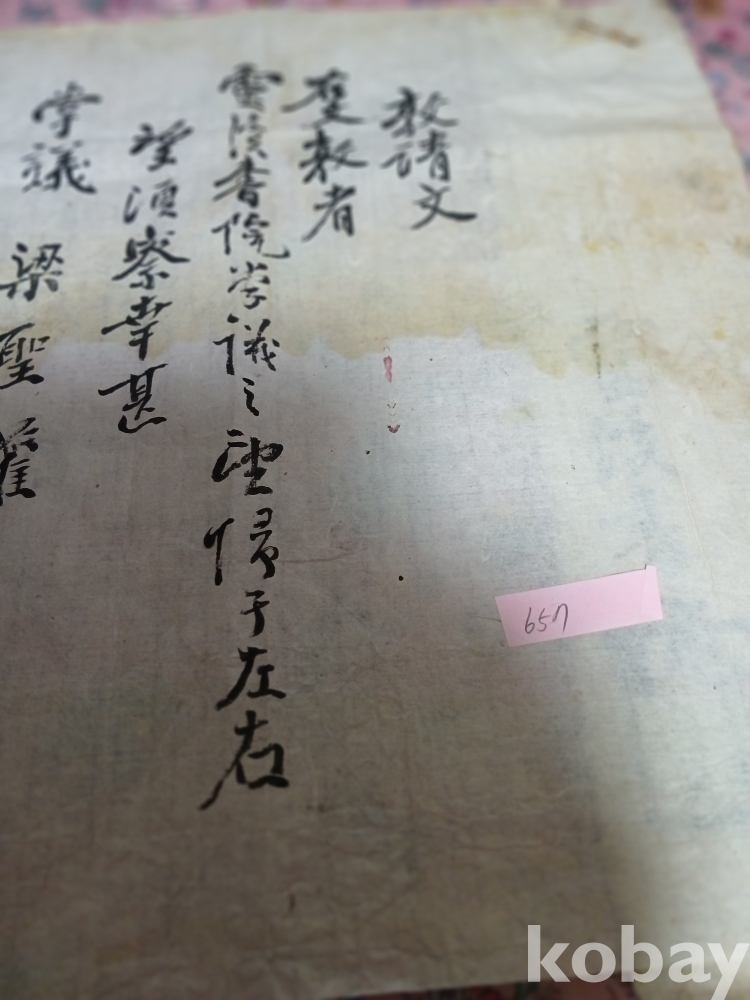 敦請文
右敬者
書院學議之望帰于左右
望須察幸甚
掌議 梁聖
657
kobay